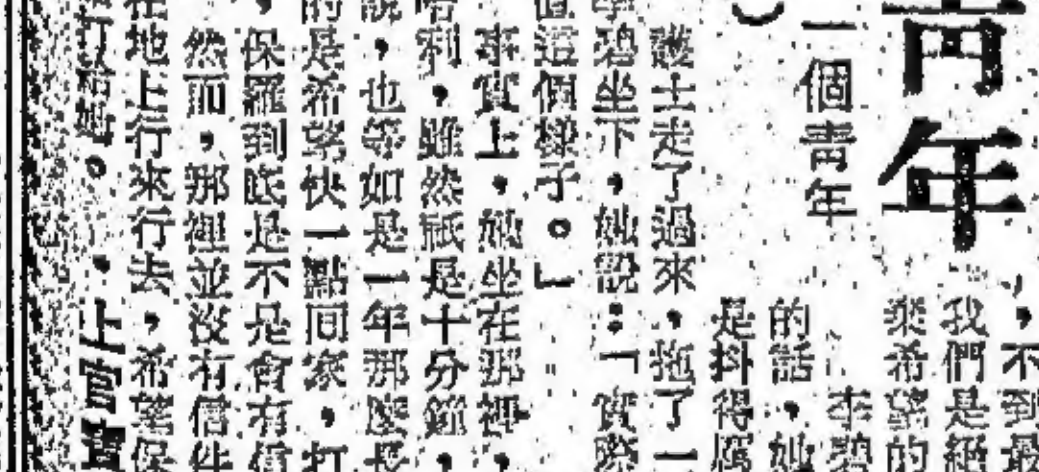 青年
一個青年
，不到最
我們是絕
希望的
李碧
的話，她
是掛得厲
護士走了過來，拖了一
李碧坐下，她說：「實際
這個樣子。」
事實上，她坐在那裡，
利，雖然祇是十分鐘，
說，也等如是一年那麼長
的是希望快一點回家，打
，保羅到底是不是會有信
然而，那裡並沒有信件
在地上行來行去，希望保
打
。
上官寶